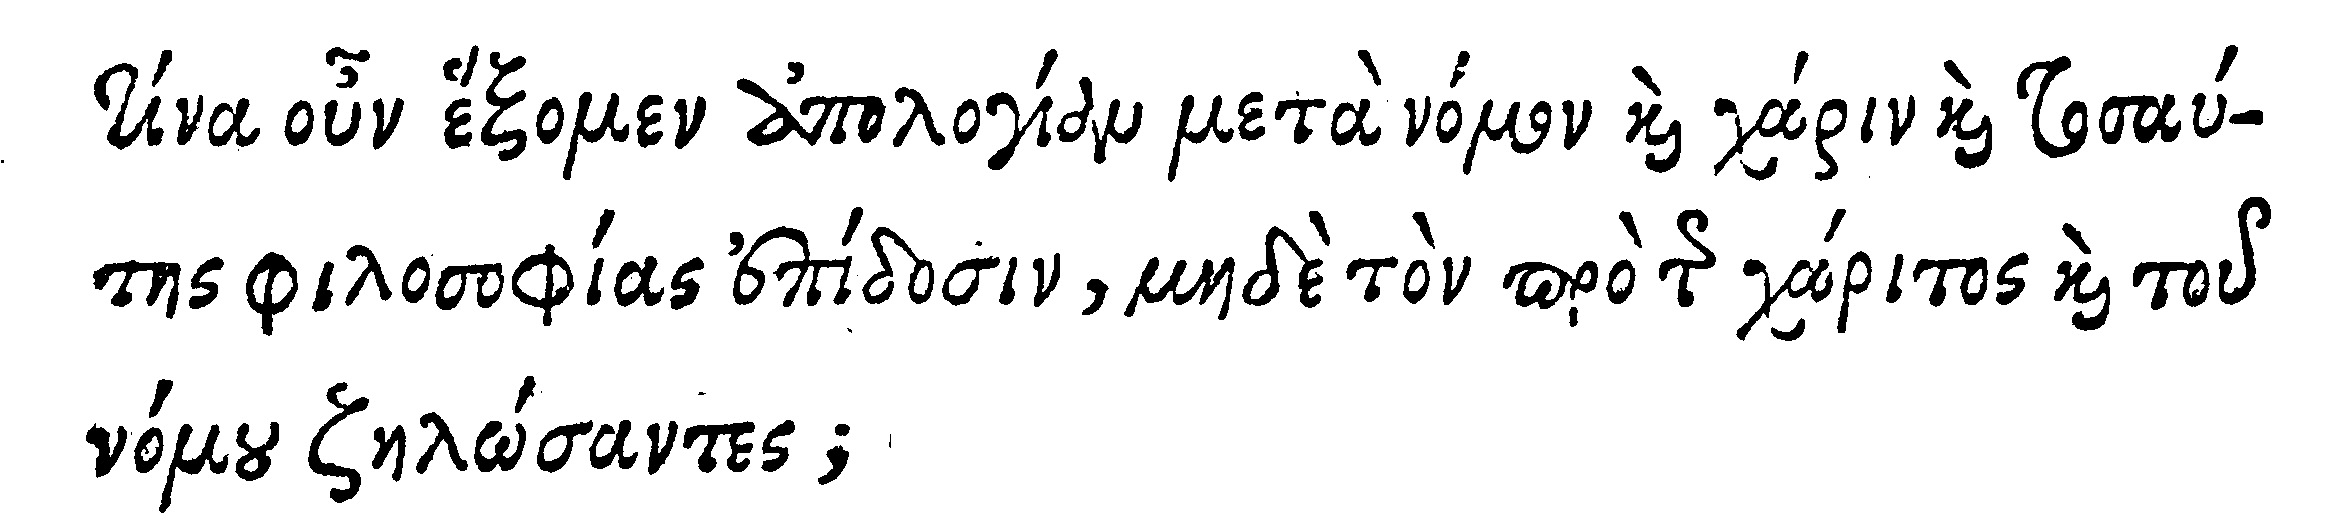 τίνα οὖν ἕξομεν ἀπολογίαν μετὰ νόμον καὶ χάριν καὶ τοσαύ-
της φιλοσοφίας ἐπίδοσιν, μηδὲ τὸν πρὸ τῆς χάριτος καὶ τοῦ
νόμου ζηλώσαντες;